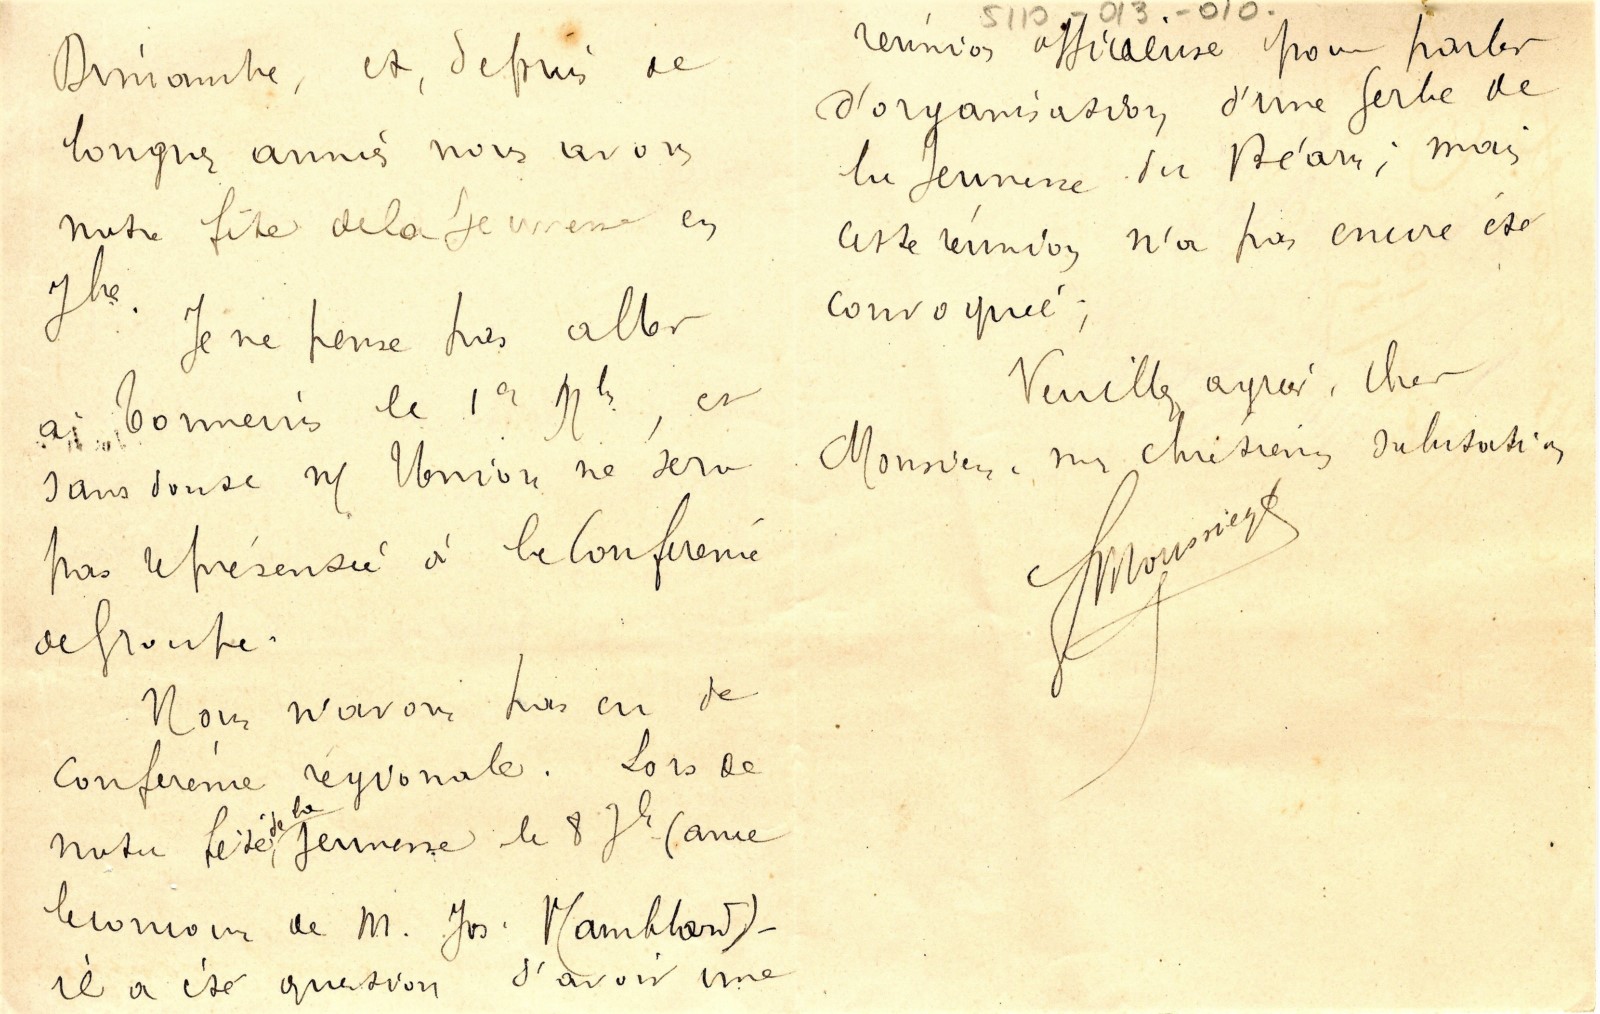 Dimanche, et, depuis de
longues années nous avons
notre fête de la Jeunesse en
7bre.
Je ne pense pas aller
à Tonneins le 1er Nbre, et
sans doute n/ Union ne sera
pas représentée à la Conférence
de Groupe.
Nous n'avons pas eu de
Conférence régionale. Lors de
notre fête de la Jeunesse le 8 7bre (avec
le concours de M. Jos.
il a été question d'avoir une
5110-013-010.
réunion officieuse pour parler
d'organisation d'une gerbe de
la Jeunesse du Béarn; mais
cette réunion n'a pas encore été
convoquée;
Veuillez agréer, Cher
Monsieur, mes chrétiennes salutations